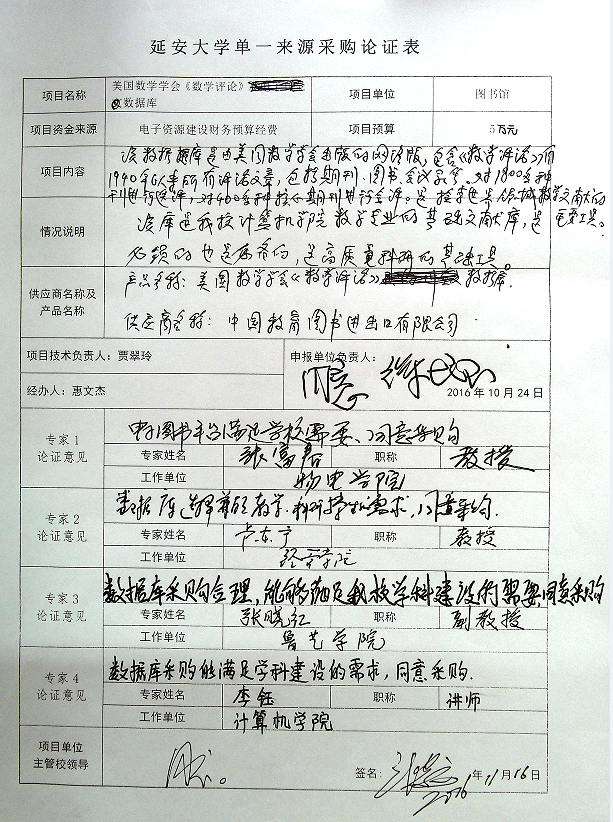 延安大学单一来源采购论证表
项目名称 美国数学学会《数学评论》 数据库 项目单位 图书馆
项目资金来源 电子资源建设财务预算经费 项目预算 5万元
项目内容 该数据库是由美国数学学会出版的网络版,包含《数学评论》自
1940年以来所有评论文章,包括期刊、图书、会议录等,对1800多种
期刊进行选评,对400多种核心期刊进行全评。是检索世界 数学文献的
重要工具。
情况说明 该库是我校计算机学院数学专业的基础文献库,是
必须的也是 的,是高质量科研的基础工具。
供应商名称及产品名称 产品名称:美国数学学会《数学评论》 数据库.
供应商名称:中国教育图书进出口有限公司
项目技术负责人:贾翠玲 申报单位负责人:
同意
经办人:惠文杰 2016年10月24日
专家1论证意见 电子图书 满足学校需要、同意采购
专家姓名 张富春 职称 教授
工作单位 物电学院
专家2论证意见 数据库选择 教学、科研 需求,同意采购.
专家姓名 职称 教授
工作单位 学院
专家3论证意见 数据库采购合理,能够满足我校学科建设的需要同意采购
专家姓名 张晓红 职称 副教授
工作单位 鲁艺学院
专家4论证意见 数据库采购能满足学科建设的需求,同意采购.
专家姓名 李钰 职称 讲师
工作单位 计算机学院
项目单位主管校领导 同意。 签名: 2016年11月16日